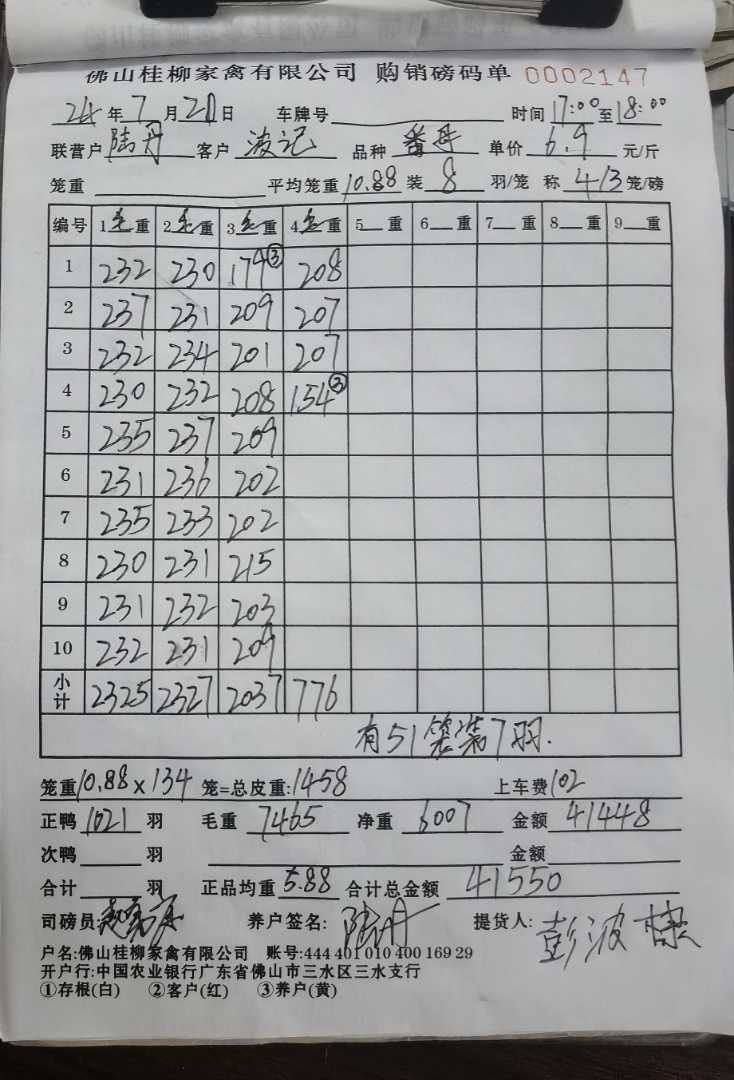 佛山桂柳家禽有限公司 购销磅码单 0002147
24年7月20日 车牌号 时间17:00至18:00
联营户 陆丹 客户 波记 品种 番鸭 单价 6.9 元/斤
笼重 平均笼重10.88装 8 羽/笼 称 4-/3 笼/磅
编号 1毛重 2毛重 3毛重 4毛重 5 重 6 重 7 重 8 重 9 重
1 232 230 179③ 208
2 237 231 209 207
3 232 234 201 207
4 230 232 208 154③
5 235 237 209
6 231 236 202
7 235 233 202
8 230 231 215
9 231 232 203
10 232 231 209
小计 2325 2327 2037 776
有51笼装7羽.
笼重10.88×134 笼=总皮重:1458 上车费102
正鸭 1021 羽 毛重 7465 净重 6007 金额 41448
次鸭 羽 金额
合计 羽 正品均重 5.88 合计总金额 41550
司磅员: 养户签名: 陆丹 提货人: 彭波
户名:佛山桂柳家禽有限公司 账号:444 401 010 400 169 29
开户行:中国农业银行广东省佛山市三水区三水支行
①存根(白) ②客户(红) ③养户(黄)